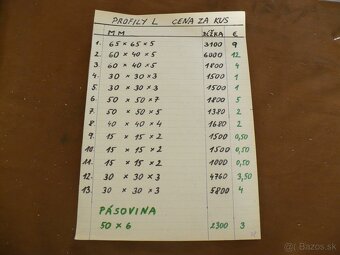 PROFILY L CENA ZA KUS
MM DĹŽKA €
1. 65 × 65 × 5 3100 9
2. 60 × 40 × 5 6000 12
3. 60 × 40 × 5 1800 4
4. 30 × 30 × 3 1500 1
5. 30 × 30 × 3 1500 1
6. 50 × 50 × 7 1800 5
7. 50 × 50 × 5 1380 2
8. 40 × 40 × 4 1680 2
9. 15 × 15 × 2 1500 0,50
10. 15 × 15 × 2 1500 0,50
11. 15 × 15 × 2 1000 0,50
12. 30 × 30 × 3 4760 3,50
13. 30 × 30 × 3 5800 4
PÁSOVINA
50 × 6 2300 3
Bazos.sk